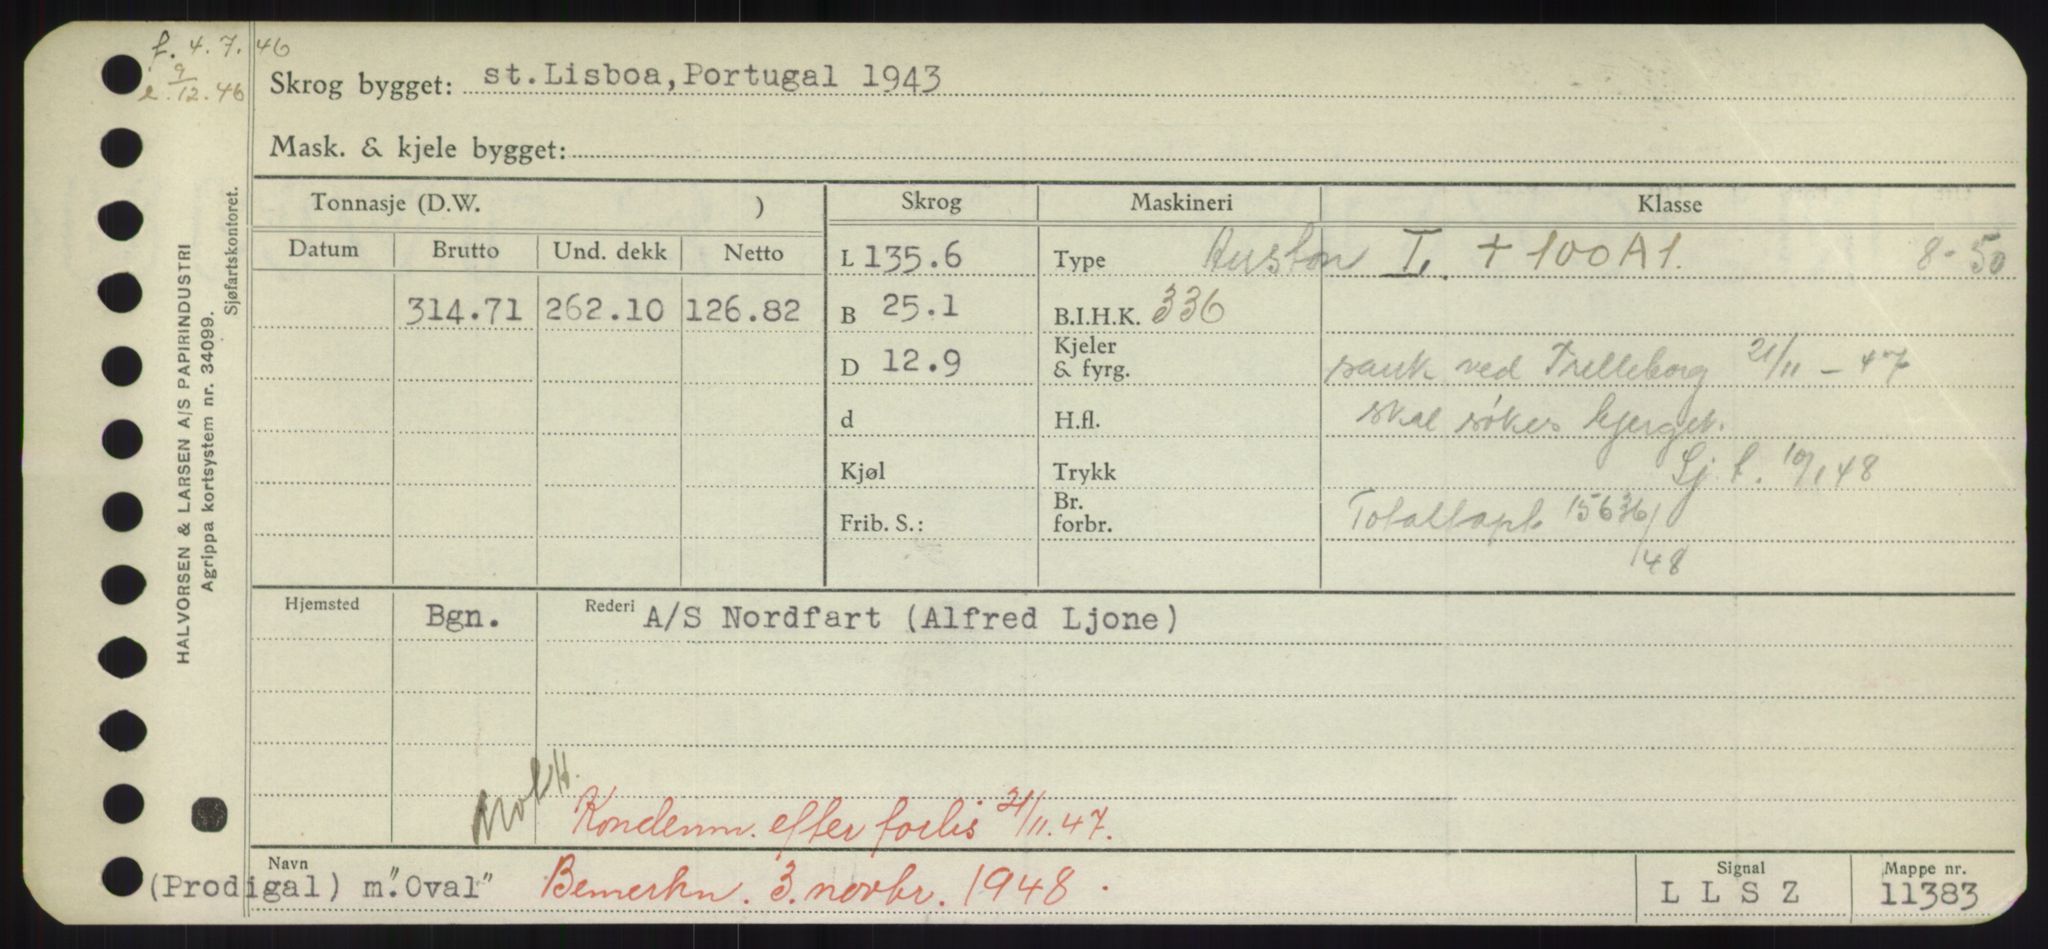 f. 4.7.46
e. 9/12.46
Skrog bygget: st.Lisboa,Portugal 1943
Mask. & kjele bygget:
HALVORSEN & LARSEN A/S PAPIRINDUSTRI
Agrippa kortsystem nr. 34099.
Sjøfartskontoret.
Tonnasje (D.W. ) Skrog Maskineri Klasse
Datum Brutto Und. dekk Netto
L 135.6 Type I. + 100 A 1. 8-50
314.71 262.10 126.82 B 25.1 B.I.H.K. 336
D 12.9 Kjeler & fyrg. sank ved Trelleborg 21/11 - 47
d H.fl. skal søkes bjerget.
Kjøl Trykk Sj.f. 10/1 48
Frib. S.: Br. forbr. Totaltapt 15636/48
Hjemsted Bgn. Rederi A/S Nordfart (Alfred Ljone)
Kondemn. efter forlis 21/11.47.
Navn Signal Mappe nr.
(Prodigal) m."Oval" Bemerkn. 3. novbr. 1948. L L S Z 11383